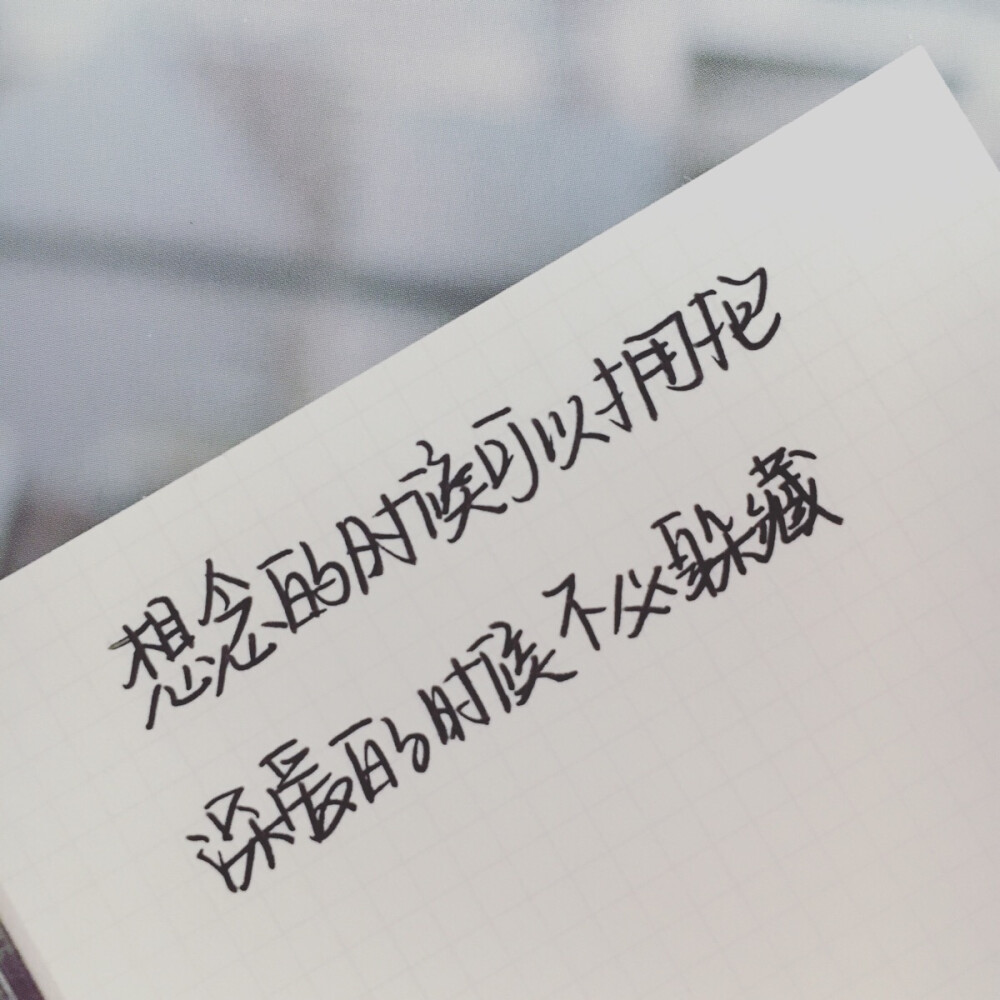 想念的时候可以拥抱
深爱的时候不必躲藏